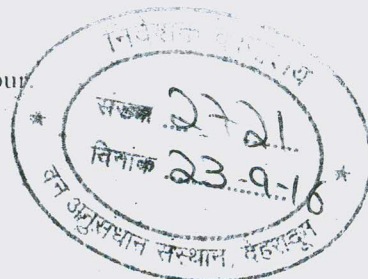 our.
निदेशक कार्यालय
संख्या 2721
दिनांक 23-9-16
वन अनुसंधान संस्थान, देहरादून